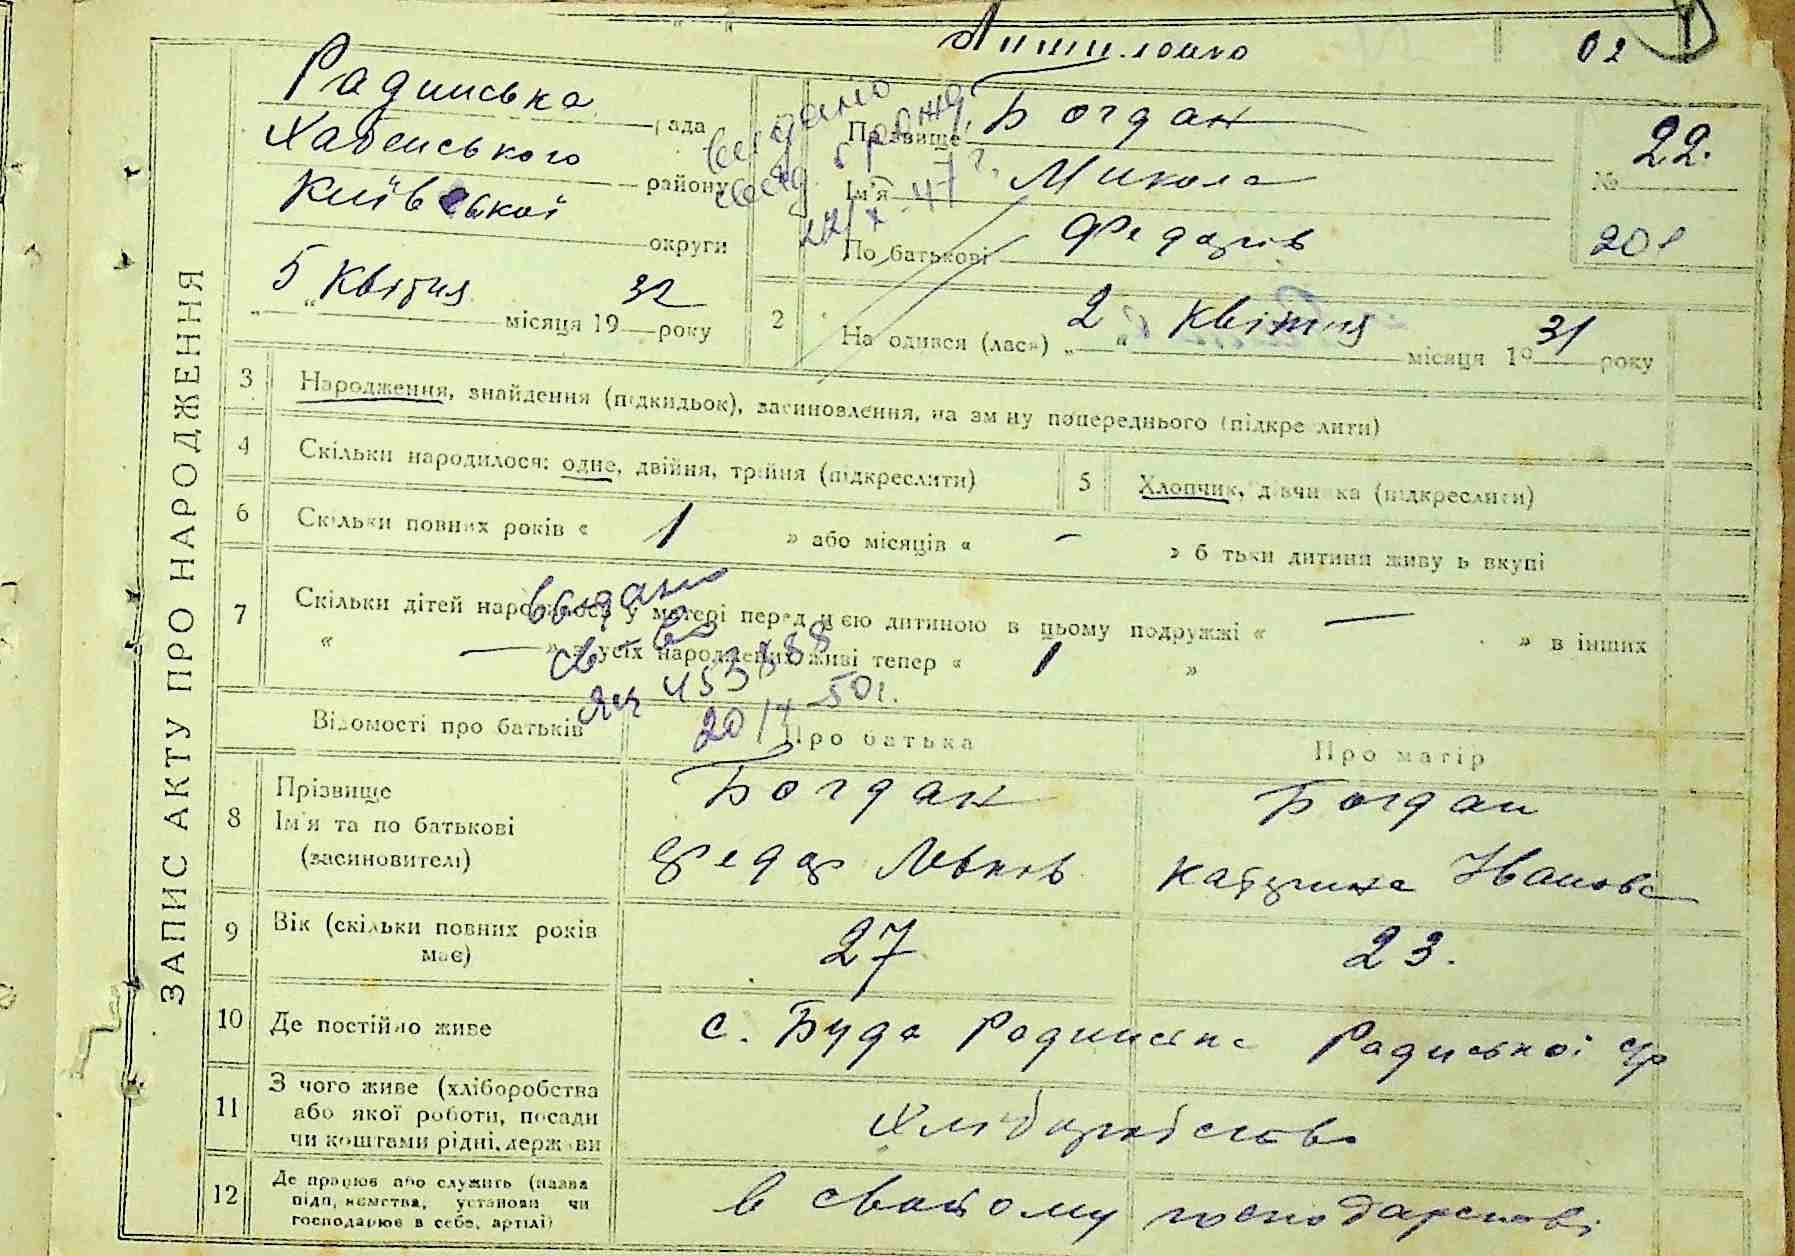 02
Радинська рада
Хабенського району
Київської округи
5 Квітня місяця 1932 року
Прізвище Богдан
Ім'я Микола
По батькові Федорів
№ 22.
201
видано
22/X 47 г.
2 Народився (лась) „2" Квітня місяця 1931 року
ЗАПИС АКТУ ПРО НАРОДЖЕННЯ
3 Народження, знайдення (підкидьок), засиновлення, на зміну попереднього (підкреслити)
4 Скільки народилося: одне, двійня, трійня (підкреслити)
5 Хлопчик, дівчинка (підкреслити)
6 Скільки повних років « 1 » або місяців « – » батьки дитини живуть вкупі
7 Скільки дітей народилося у матері перед цією дитиною в цьому подружжі « — » в інших
« — » з усіх народжених живі тепер « 1 »
видано
св-во
453788
20/X 50 г.
Відомості про батьків
Про батька
Про матір
8 Прізвище
Ім'я та по батькові
(засиновителі)
Богдан
Федор Левків
Богдан
Катерина Іванова
9 Вік (скільки повних років
має)
27
23.
10 Де постійно живе
с. Буда Радинська Радинської с/р
11 З чого живе (хліборобства
або якої роботи, посади
чи коштами рідні, держави
Хліборобство
12 Де працює або служить (назва
підприємства, установи чи
господарює в себе, артілі)
в своєму господарстві